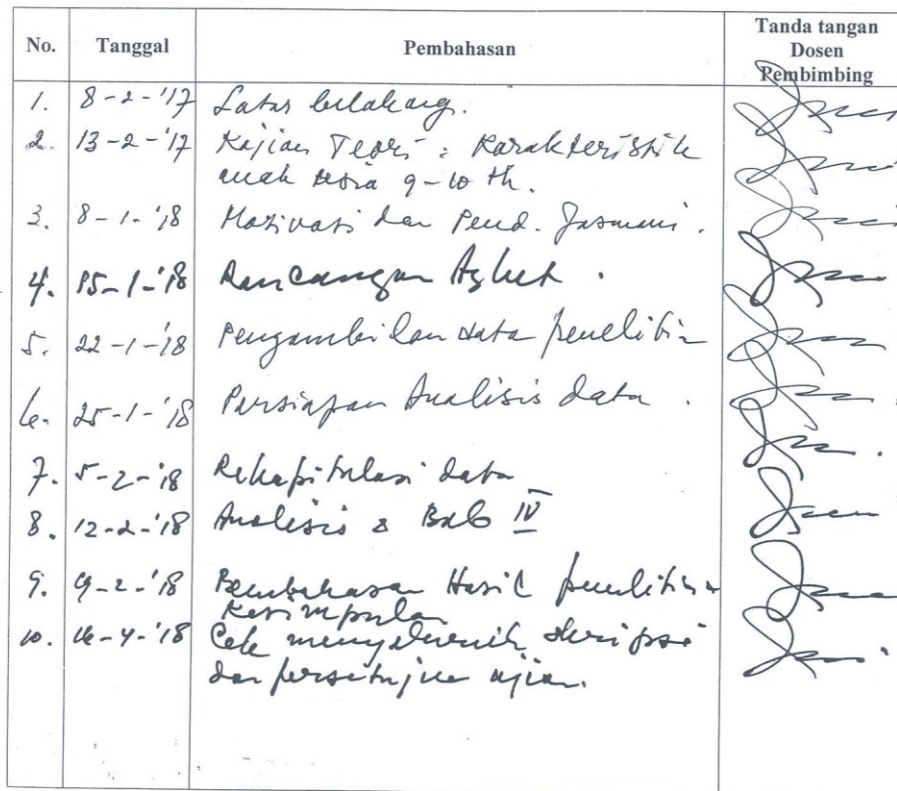 No. Tanggal Pembahasan Tanda tangan
Dosen
Pembimbing
1. 8-2-'17 Latar belakang.
2. 13-2-'17 Kajian Teori : Karakteristik
anak usia 9-10 th.
3. 8-1-'18 Motivasi dan Pend. Jasmani.
4. 15-1-'18 Rancangan
5. 22-1-'18 Pengambilan data penelitian
6. 25-1-'18 Persiapan Analisis data.
7. 5-2-'18 Rekapitulasi data
8. 12-2-'18 Analisis & Bab IV
9. Pembahasan Hasil penelitian
Kesimpulan
10. Cek menyeluruh skripsi
dan persetujuan ujian.